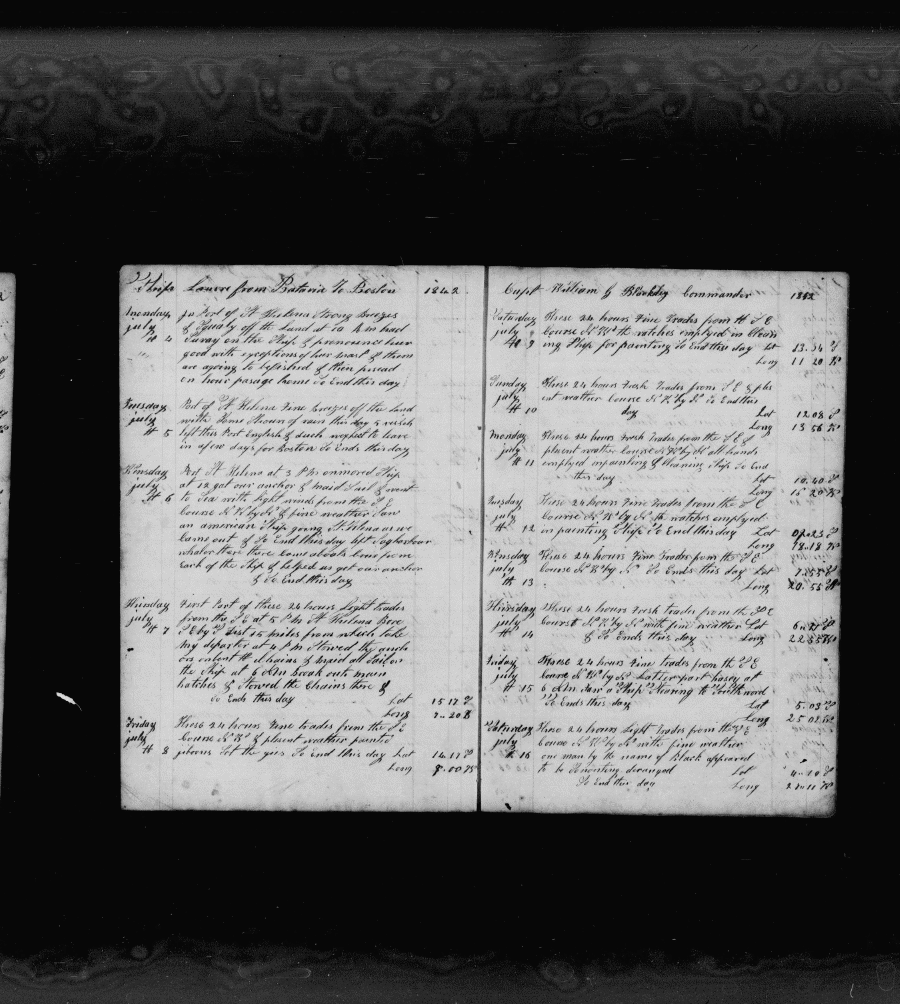 Ship Laura from Batavia To Boston 1842
Monday in Port of St Helena Strong breezes
july & Squaly off the Land at 10 A m had
th 4 Survay on the Ship & pronounce her
good with exceptions of her mast & them
are agoing to be fished & then proead
on hour pasage home So End this day
Tuesday Port of St Helena Fine breezes off the land
july with Some Showers of rain this day
th 5 left this Port English & duch to leave
in a few days for Boston So Ends this day
Wensday Port St Helena at 3 P m onmored Ship
july at 12 got our anchor & maid Sail & went
th 6 to Sea with light winds from the S E
Course N W by N & fine weather Saw
an american Ship going St Helena as we
came out & So End this day left
whaler there there come aboats crue from
Each of the Ship & helped us get our anchor
& So End this day
Thursday First Part of these 24 hours Light trades
july from the S E at 5 P m St Helena Bore
th 7 S E by S Dist 15 miles from which I take
my departer at 4 P m Stowed the anch
ors onbent the chains & maid all Sail on
the Ship at 6 A m break out main
hatches & Stowed the Chains there &
So Ends this day Lat 15 17 S
Long 7 20 W
Friday These 24 hours Fine trades from the S E
july Course N W & plesent weather painted
th 8 jibbom Set the So End this day Lat 14 17 S
Long 9 00 W
Capt William G Blockley Commander 1842
Saturday These 24 hours Fine Trades from th S E
july Course N W the watches employed in Clean
th 9 ing Ship for painting So End this day Lat 13 34 S
Long 11 20 W
Sunday These 24 hours Fresh Trades from S E & ples
july ent wether Course N W by N So End this
th 10 day Lat 12 08 S
Long 13 56 W
Monday These 24 hours Fresh Trades from the S E &
july plesent weather Course N W by N all hands
th 11 employed in painting & Cleaning Ship So End
this day Lat 10 40 S
Long 15 20 W
Tuesday These 24 hours Fine Trades from the S E
july Course N W by N the watches employed
th 12 in painting Ship So End this day Lat 09 23 S
Long 18 18 W
Wensday These 24 hours Fine Trades from the S E
july Course N W by N So Ends this day Lat 7 55 S
th 13 Long 20 55 W
Thursday These 24 hours Fresh trades from the S E
july Course N W by N with fine weather Lat S
th 14 & So Ends this day Long 22 55 W
Friday These 24 hours Fine trades from the S E
july Course N W by N Latter part hasey at
th 15 6 A m Saw a Ship Stearing to Southward
So Ends this day Lat 5 03 S
Long 25 02 W
Saturday These 24 hours Light Trades from the S E
july Course N W by N with fine weather
th 16 one man by the name of Black appeared
to be deranged Lat 4 10 S
So End this day Long 27 11 W